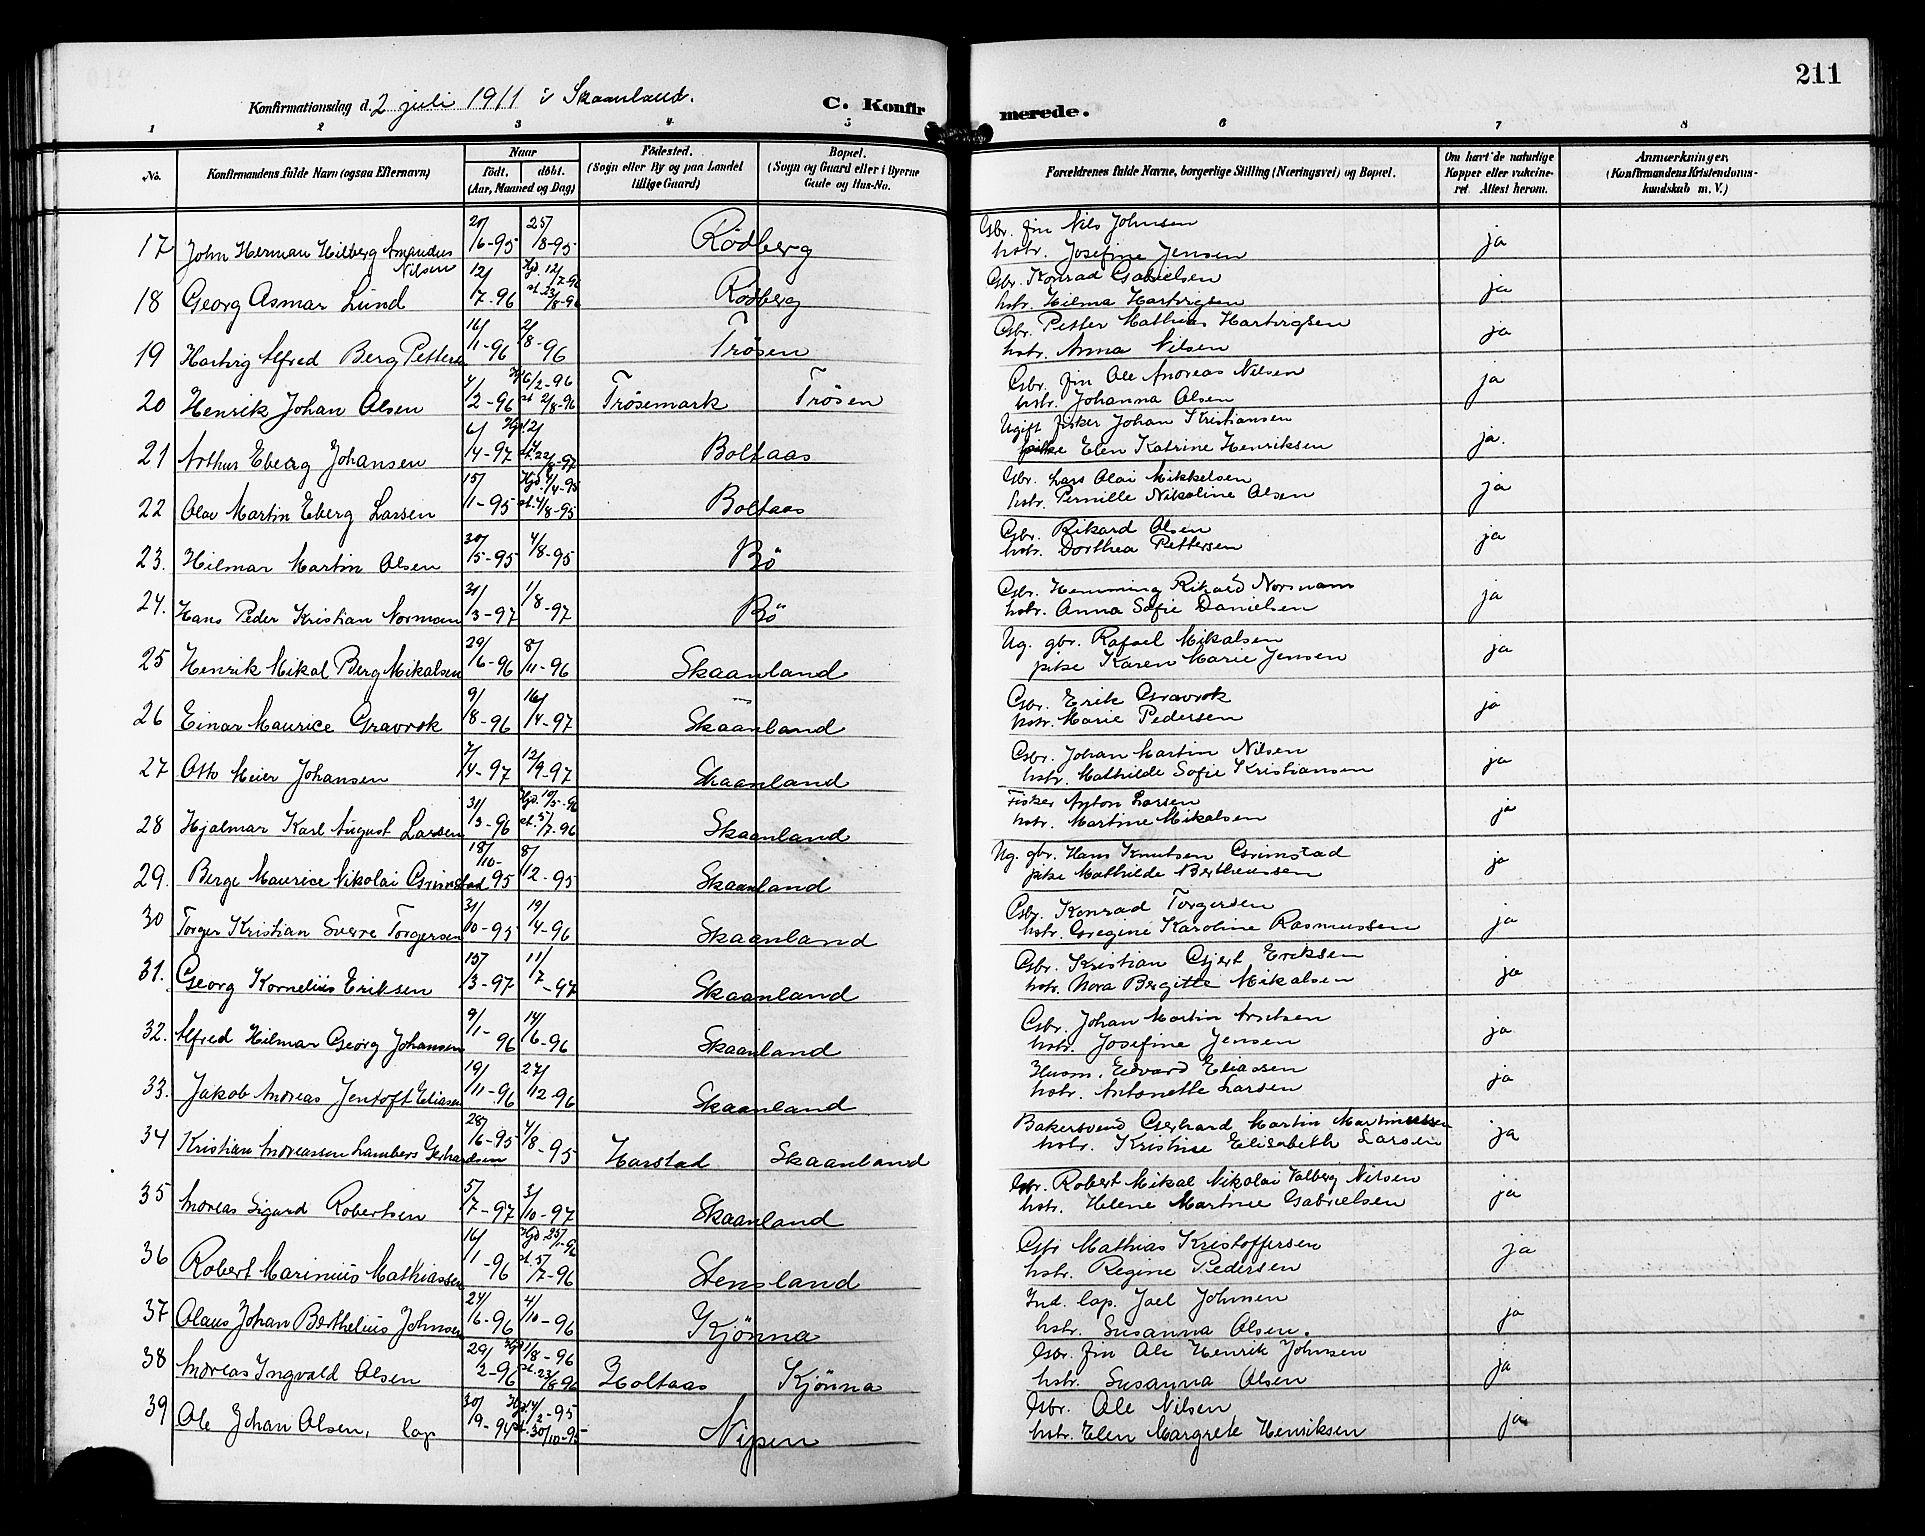 211
Konfirmationsdag d. 2 juli 1911 i Skaanland.
C. Konfirmerede.
1 2 3 4 5 6 7 8
No. Konfirmandens fulde Navn (ogsaa Efternavn) Naar født. døbt. (Aar, Maaned og Dag) Fødested. (Sogn eller By og paa Landet tillige Gaard) Bopæl. (Sogn og Gaard eller i Byerne Gade og Hus-No. Forældrenes fulde Navne, borgerlige Stilling (Næringsvei) og Bopæl. Om havt de naturlige Kopper eller vakcineret. Attest herom. Anmærkninger. (Konfirmandens Kristendomskundskab m. V.)
17 John Herman Hilberg Amandus Nilsen 20/6-95 25/8-95 Rödberg Gbr. fin Nils Johnsen hstr. Josefine Jensen ja
18 Georg Asmar Lund 12/7-96 Hjd. 12/7-96 st. 23/8-96 Rödberg Gbr. Konrad Gabrielsen hstr. Hilma Hartvigsen ja
19 Hartvig Alfred Berg Pettersen 16/1-96 2/8-96 Trösen Gbr. Petter Mathias Hartvigsen hstr. Anna Nilsen ja
20 Henrik Johan Olsen 4/2-96 Hjd. 6/2-96 st. 2/8-96 Trösemark Trösen Gbr. fin Ole Andreas Nilsen hstr. Johanna Olsen ja
21 Arthur Eberg Johansen 6/4-97 st. 22/8-97 Boltaas Ugift fisker Johan Kristiansen pike Elen Katrine Henriksen ja.
22 Olav Martin Eberg Larsen 15/1-95 st. 4/8-95 Boltaas Gbr. Lars Olai Mikkelsen hstr. Pernille Nikoline Olsen ja
23. Hilmar Martin Olsen 30/5-95 4/8-95 Bö Gbr. Rikard Olsen hstr. Dorthea Pettersen ja
24. Hans Peder Kristian Norman 31/3-97 1/8-97 Bö Gbr. Hemming Rikard Normann hstr. Anna Sofie Danielsen ja
25 Henrik Mikal Berg Mikalsen 29/6-96 8/11-96 Skaanland Ug. gbr. Rafael Mikalsen pike Karen Marie Jensen ja
26 Einar Maurice Gravrok 9/8-96 16/4-97 Skaanland Gbr. Erik Gravrok hstr. Marie Pedersen ja
27 Otto Meier Johansen 7/4-97 12/9-97 Skaanland Gbr. Johan Martin Nilsen hstr. Mathilde Sofie Kristiansen ja
28 Hjalmar Karl August Larsen 31/3-96 Hjd. 19/5-96 st. 5/7-96 Skaanland Fisker Anton Larsen hstr. Martine Mikalsen ja
29. Berge Maurice Nikolai Grimstad 18/10-95 8/12-95 Skaanland Ug. gbr. Hans Knutsen Grimstad pike Mathilde Bertheussen ja
30 Torger Kristian Sverre Torgersen 31/10-95 19/4-96 Skaanland Gbr. Konrad Torgersen hstr. Gregine Karoline Rasmussen ja
31. Georg Kornelius Eriksen 15/3-97 11/7-97 Skaanland Gbr. Kristian Gjert Eriksen hstr. Nora Bergitte Mikalsen ja
32. Alfred Hilmar Georg Johansen 9/1-96 14/6-96 Skaanland Gbr. Johan Martin Arntsen hstr. Josefine Jensen ja
33. Jakob Andreas Jentoft Eliasen 19/11-96 27/12-96 Skaanland Husm. Edvard Eliassen hstr. Antonette Larsen ja
34 Kristian Andreassen Lambers Gerhardsen 28/6-95 4/8-95 Harstad Skaanland Bakersvend Gerhard Martin Martinussen hstr. Kristine Elisabeth Larsen ja
35 Andreas Sigurd Robertsen 5/7-97 3/10-97 Skaanland Gbr. Robert Mikal Nikolai Valberg Nilsen hstr. Helene Martine Gabrielsen ja
36 Robert Marinius Mathiassen 16/1-96 Hjd 25/1-96 st. 5/7-96 Stensland Gbr Mathias Kristoffersen hstr. Regine Pedersen ja
37 Olaus Johan Berthelius Johnsen 24/6-96 4/10-96 Kjönna Ind. lap. Joel Johnsen hstr. Susanna Olsen. ja
38 Andreas Ingvald Olsen 29/2-96 st. 23/8-96 Holtaas Kjönna Gbr. fin Ole Henrik Johnsen hstr. Susanna Olsen ja
39 Ole Johan Olsen, lap 30/9-94 st. 30/10-95 Nipen Gbr. Ole Nilsen hstr. Elen Margrete Henriksen ja